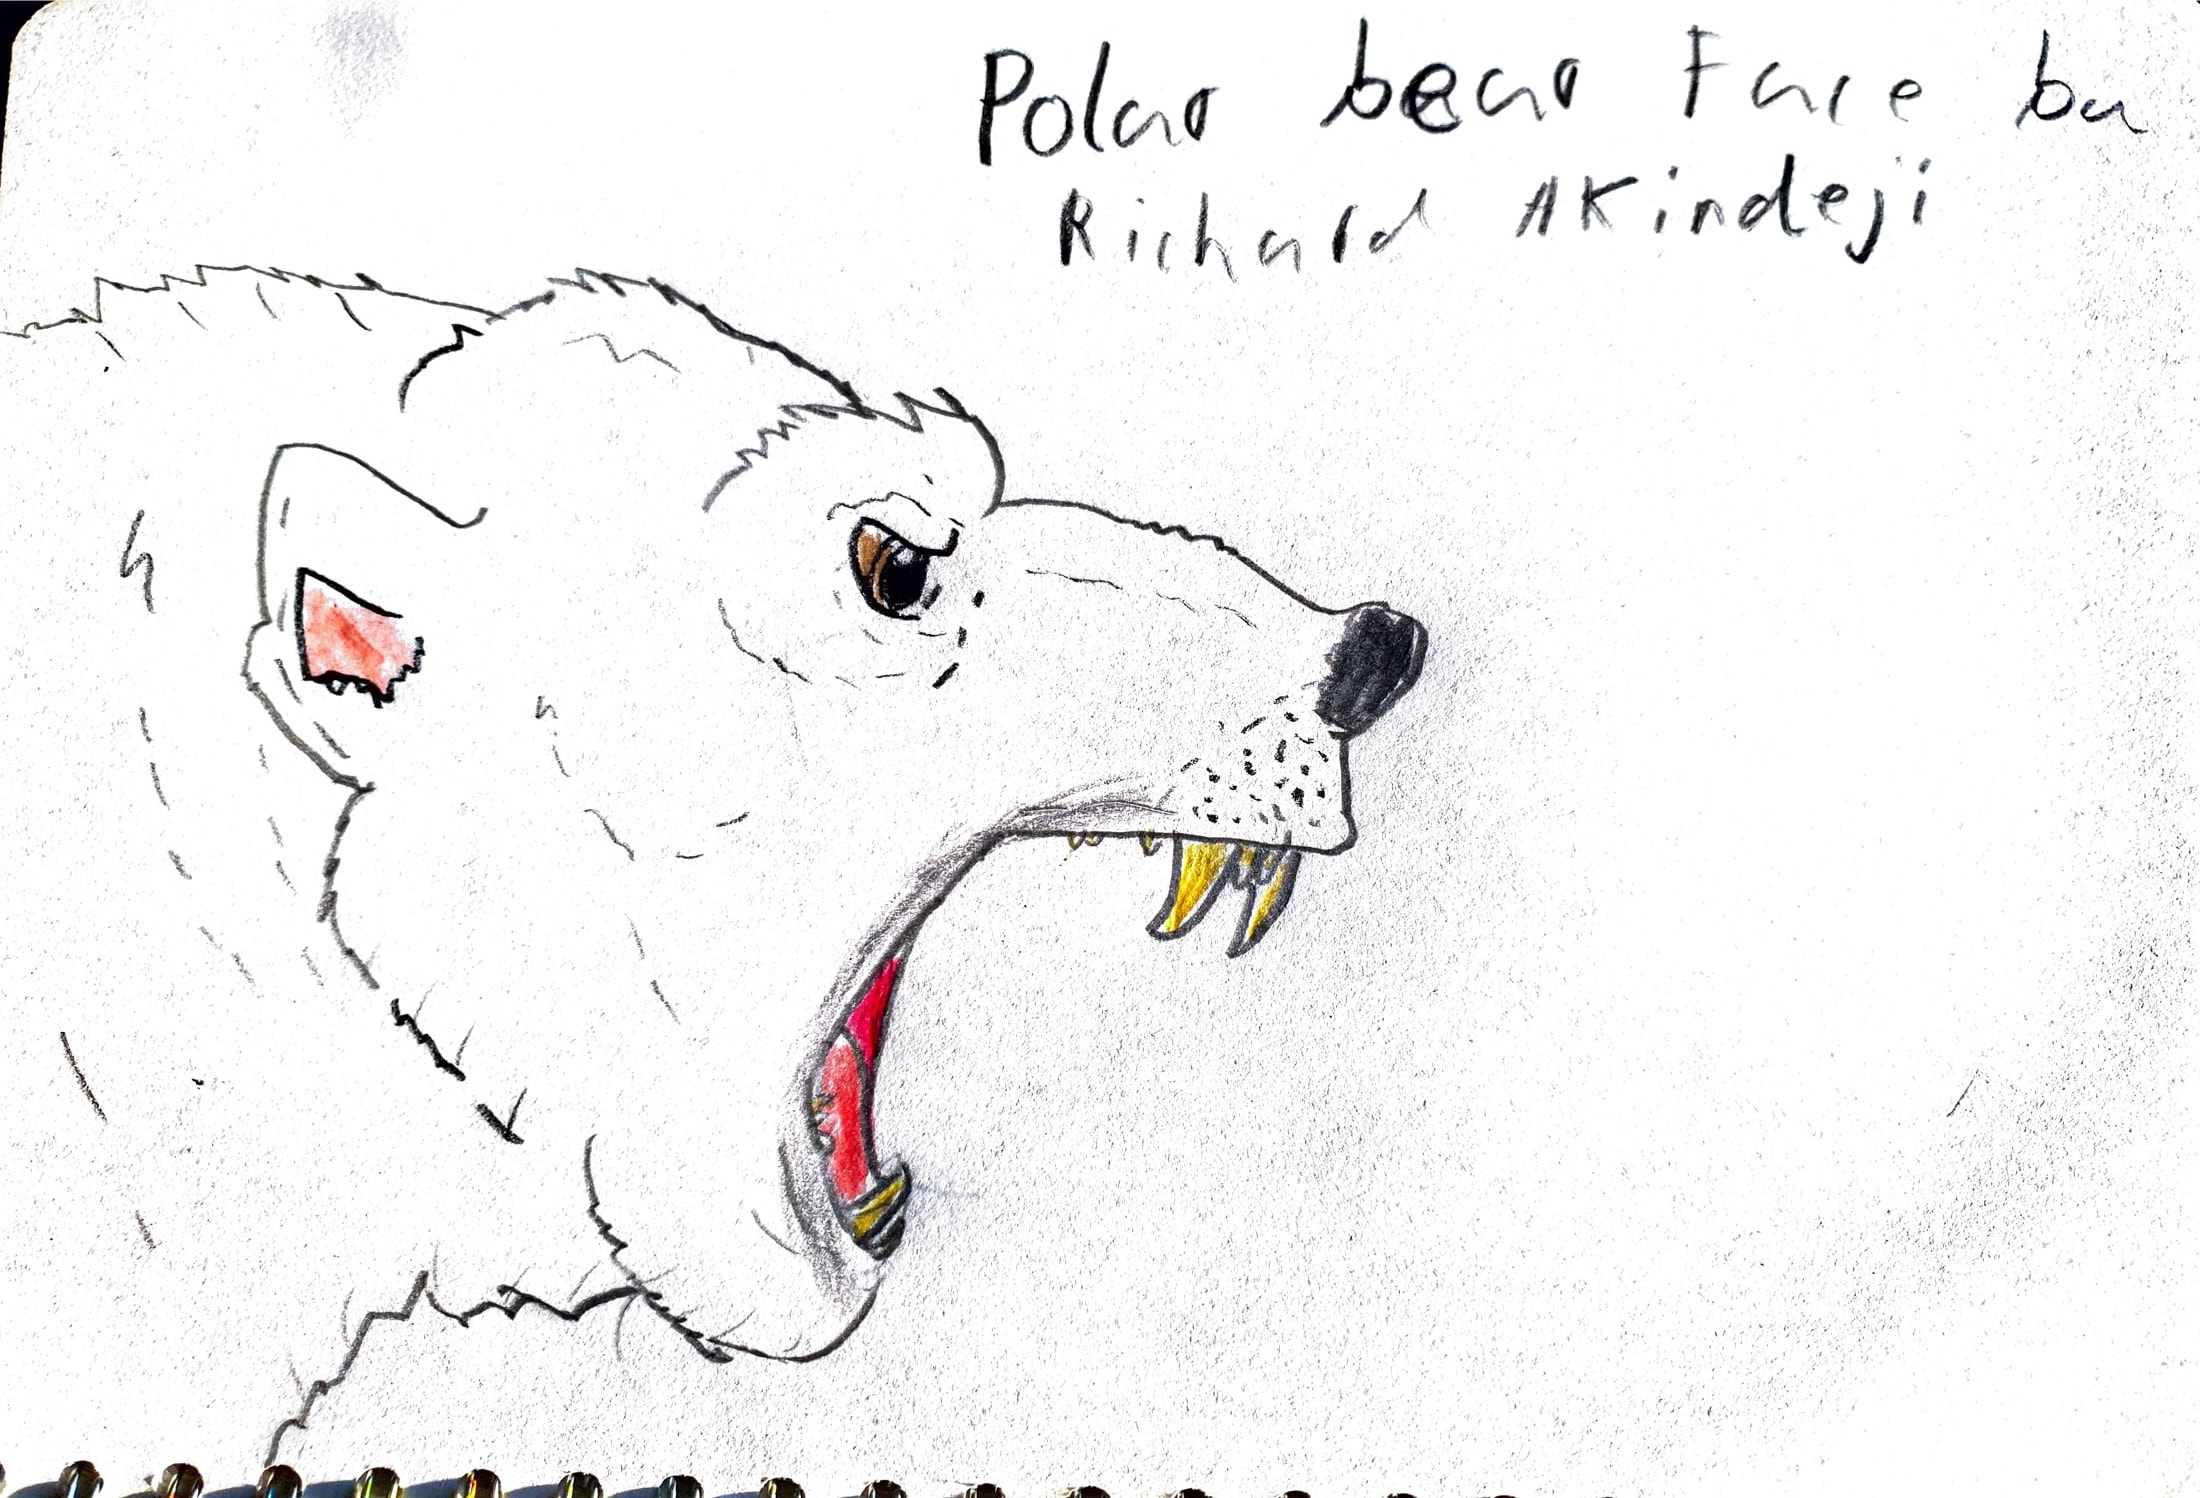 Polar bear Face by
Richard Akindeji